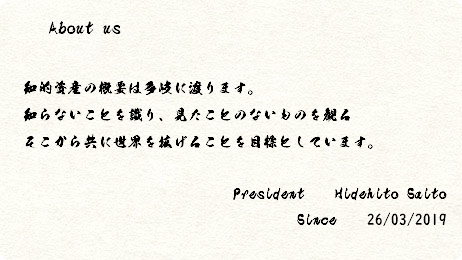 About us
知的資産の概要は多岐に渡ります。
知らないことを識り、見たことのないものを観る
そこから共に世界を拡げることを目標としています。
President Hidehito Saito
Since 26/03/2019